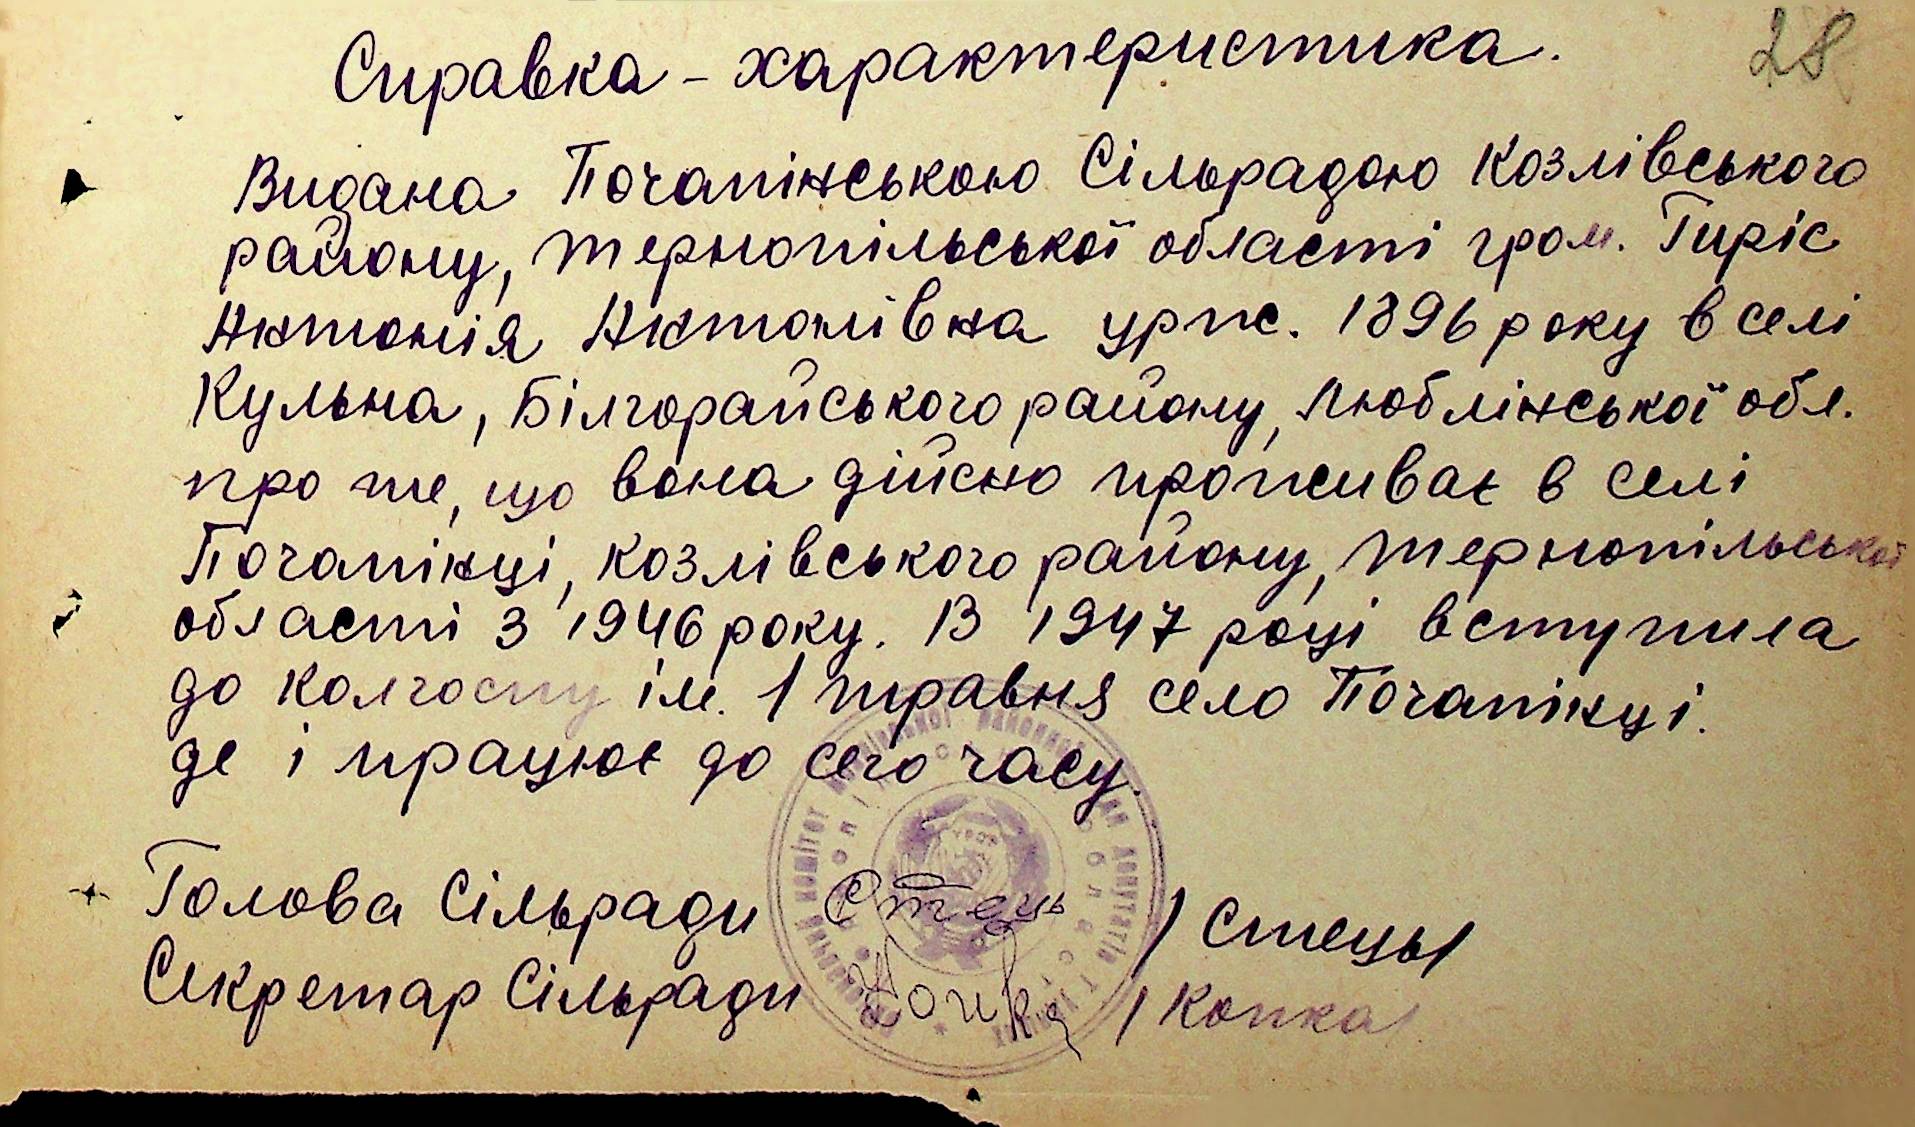 28
Справка - характеристика.
Видана Почапінською Сільрадою Козлівського
району, Тернопільської області гром. Гиріс
Антонія Антонівна урж. 1896 року в селі
Кульна, Білгорайського району, Люблінської обл.
про те, що вона дійсно проживає в селі
Почапінці, Козлівського району, Тернопільської
області з 1946 року. В 1947 році вступила
до колгоспу ім. 1 травня село Почапінці.
де і працює до сего часу.
Голова Сільради Стець / Стець/
Секретар Сільради Копка / Копка/
комітет районної депутатів
області